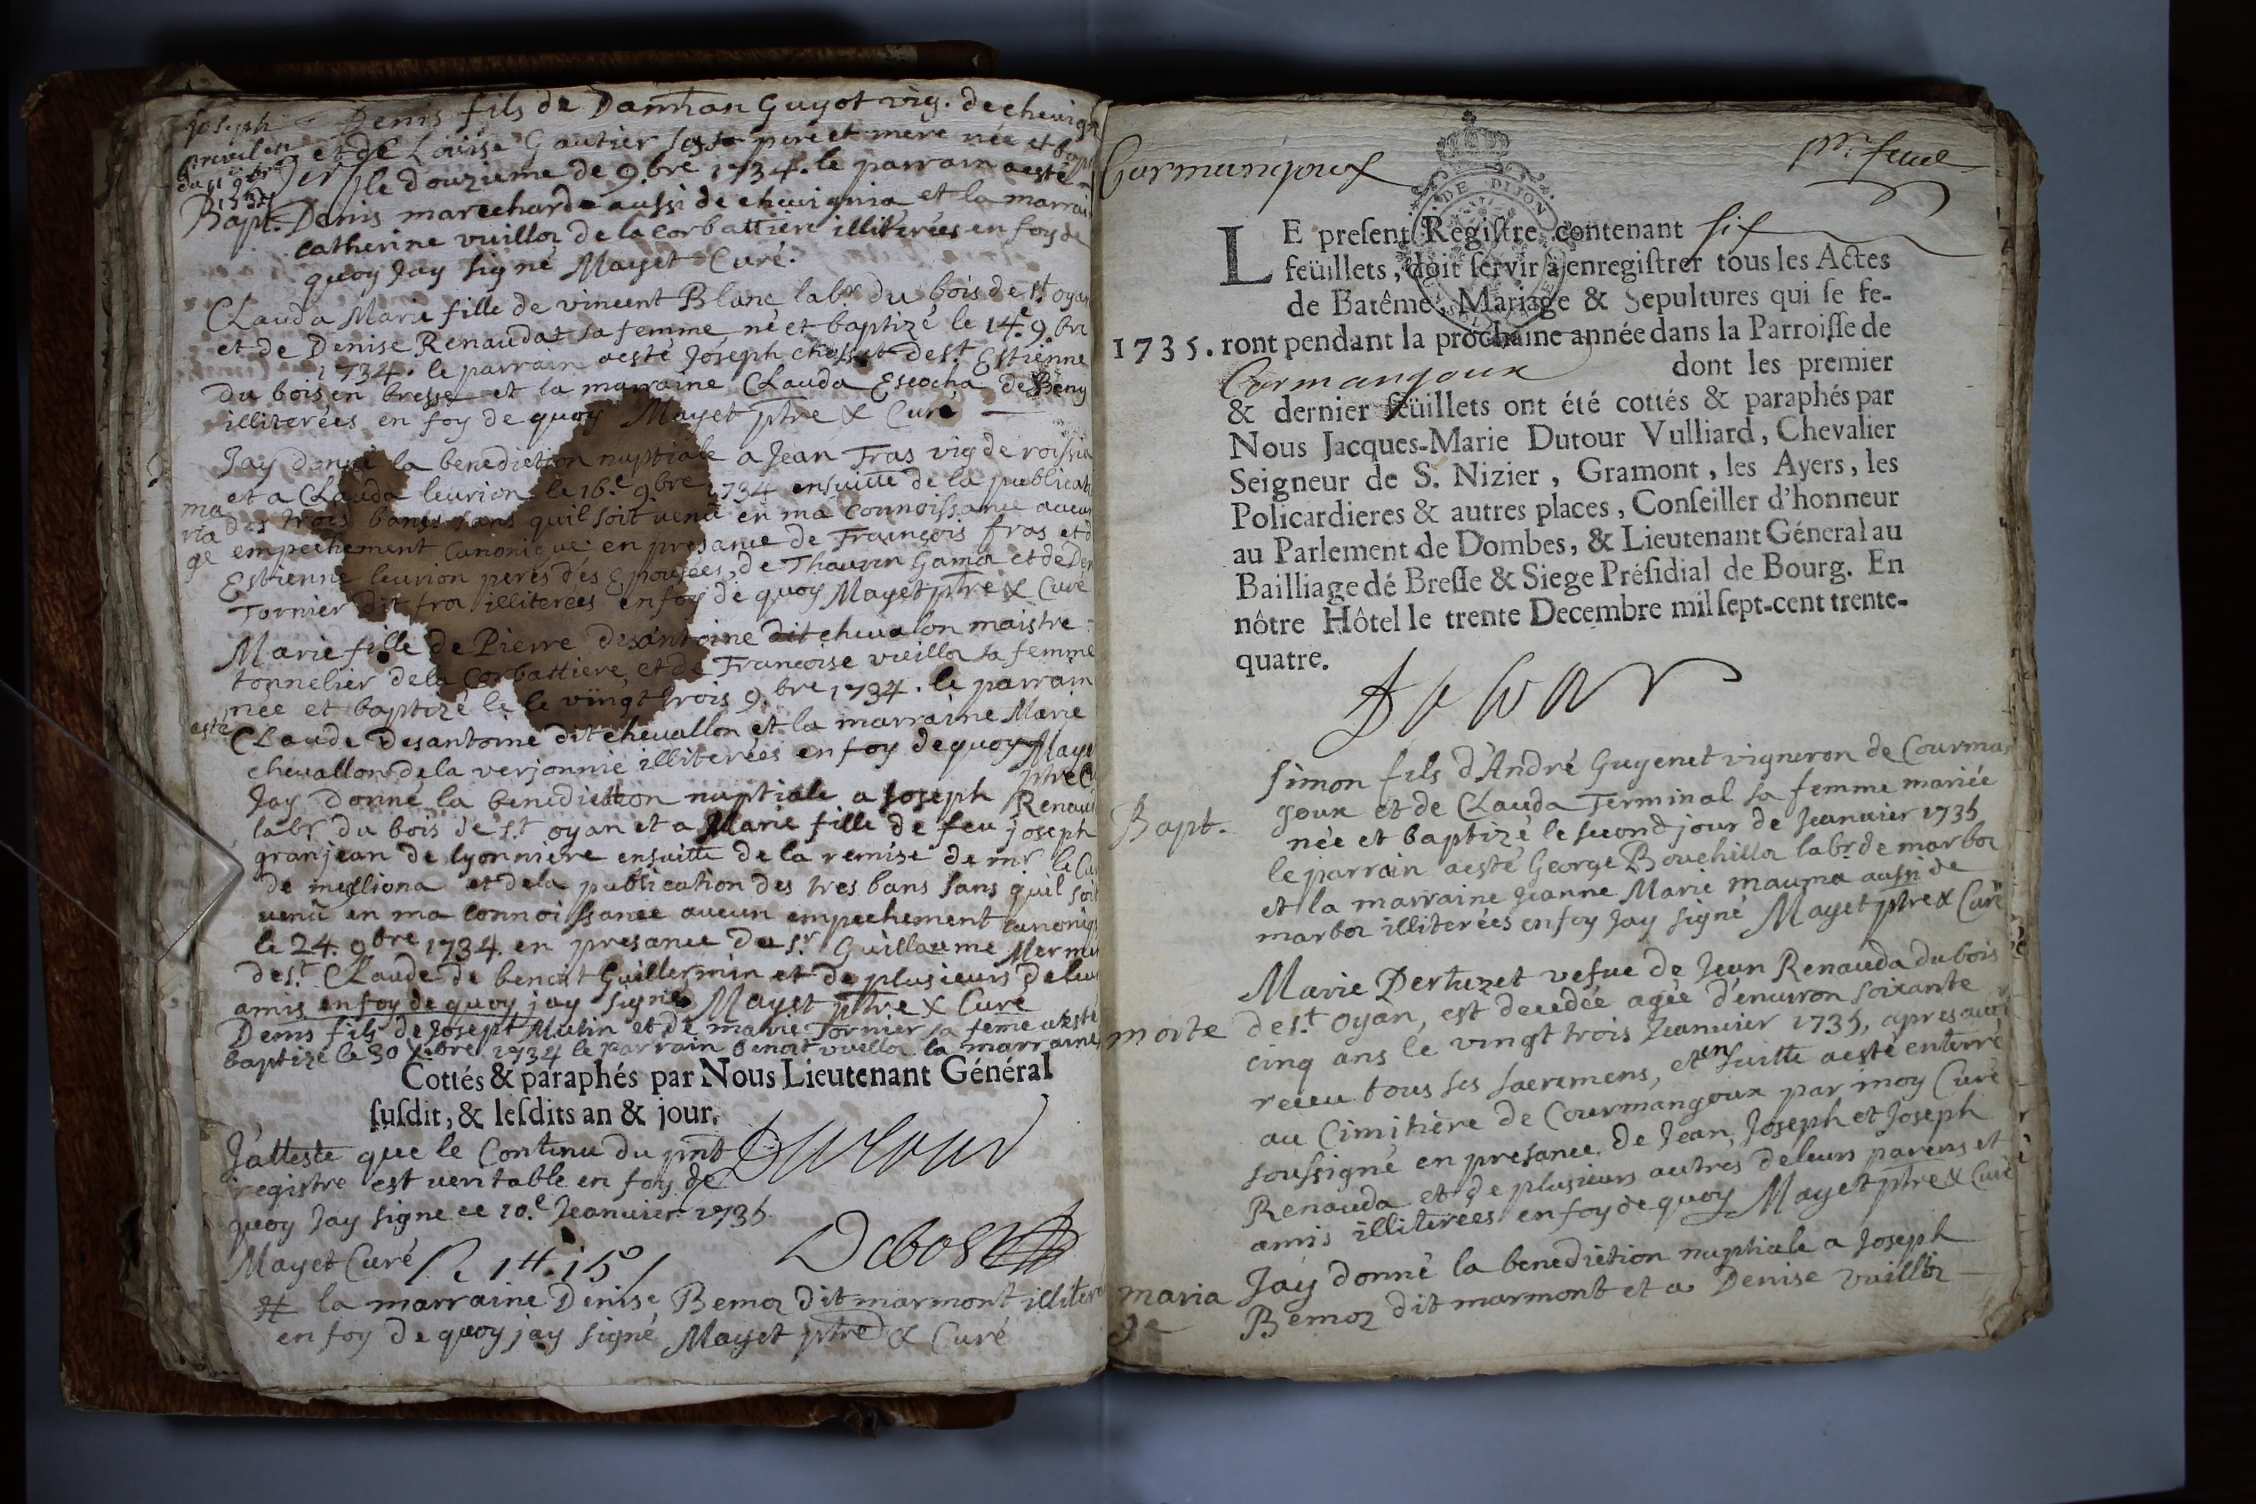 Denis fils de Damian Guyot vig. de chevign
et de Louise Gautier ses pere et mere née et bapt
le douzieme de 9.bre 1734. le parrain aesté
Bapt. Denis marechard aussi de chevignia et la marrai
catherine vuilloz de la corbattiere illiterées en foy de
quoy Jay signé Mayet Curé.
CLauda Marie fille de vincent Blanc labr du bois de st oyan
et de Denise Renaudat sa femme né et baptizé le 14.e 9.bre
1734. le parrain aesté Joseph chosset de st Estienne
du bois en bresse et la marraine CLauda Escocha de Beny
illiterées en foy de quoy Mayet ptre & Curé
Jay donné la benediction nuptiale a Jean Fras vig de roissia
et a CLauda leurion le 16.e 9.bre 1734 ensuitte de la publicati
des trois bans sans quil soit venu en ma connoissance aucun
maria
ge
empechement canonique en presance de François fras et d
Estienne leurion peres des Epousées, de Thauvin Gama et de Den
Tornier dit fra illiterées en foy de quoy Mayet ptre & Curé
Marie fille de Pierre desantoine dit chevalon maistre
tonnelier de la Corbattiere, et de Francoise vuilloz sa femme
née et baptizé le le vingt trois 9.bre 1734. le parrain
esté CLaude Desantoine dit chevallon et la marraine Marie
chevallon de la verjonnie illiterées en foy de quoy Maye
ptre Cu
Jay donné la benediction nuptiale a Joseph Renaud
labr. du bois de st oyan et a Marie fille de feu joseph
granjean de lyonniere ensuitte de la remise de mr. le Cu
de meilliona et de la publication des tres bans sans quil soit
venu en ma connoissance aucun empechement canoniq
le 24. 9bre 1734. en presance du sr Guillaume Mermet
de st CLaude de benoit Guillermin et de plusieurs de leur
amis en foy de quoy jay signé Mayet ptre & Curé
Denis fils de Joseph Mutin et de marie Tornier sa feme aesté
baptizé le 30 Xbre 1734 le parrain benoit vuilloz la marraine
Cottés & paraphés par Nous Lieutenant Général
susdit, & lesdits an & jour.
J'atteste que le Contenu du pnt
registre est veritable en foy de
quoy Jay signé ce 10.e Jeanvier 1735
Mayet Curé
Dutour
Debost
# la marraine Denise Bemoz dit marmont illitere
en foy de quoy jay signé Mayet ptre & Curé
Cormangoux
pr. feuil
LE present Registre contenant six
feüillets, doit servir à enregistrer tous les Actes
de Batême, Mariage & Sepultures qui se fe-
1735. ront pendant la prochaine année dans la Parroisse de
Cormangoux dont les premier
& dernier feüillets ont été cottés & paraphés par
Nous Jacques-Marie Dutour Vulliard, Chevalier
Seigneur de S. Nizier, Gramont, les Ayers, les
Policardieres & autres places, Conseiller d'honneur
au Parlement de Dombes, & Lieutenant Géneral au
Bailliage dé Bresse & Siege Présidial de Bourg. En
nôtre Hôtel le trente Decembre mil sept-cent trente-
quatre.
simon fils d'André Guyenet vigneron de Courman
Bapt. goux et de CLauda Terminal sa femme mariée
née et baptizé le second jour de Jeanvier 1735
le parrain aesté George Bouchilloz labr. de marboz
et la marraine Jeanne Marie mauma aussi de
marboz illiterées en foy Jay signé Mayet ptre & Curé
Marie Dertuzet vefue de Jean Renauda du bois
morte de st oyan, est decedée agée d'environ soixante
cinq ans le vingt trois Jeanvier 1735, apres avoir
receu tous ses sacremens, et ensuitte aesté enterré
au Cimitiere de Courmangoux par moy Curé
soussigné en presance de Jean, Joseph et Joseph
Renauda et de plusieurs autres de leurs parens et
amis illiterées en foy de quoy Mayet ptre & Curé
maria
ge
Jay donné la benediction nuptiale a Joseph
Bemoz dit marmont et a Denise vuilloz